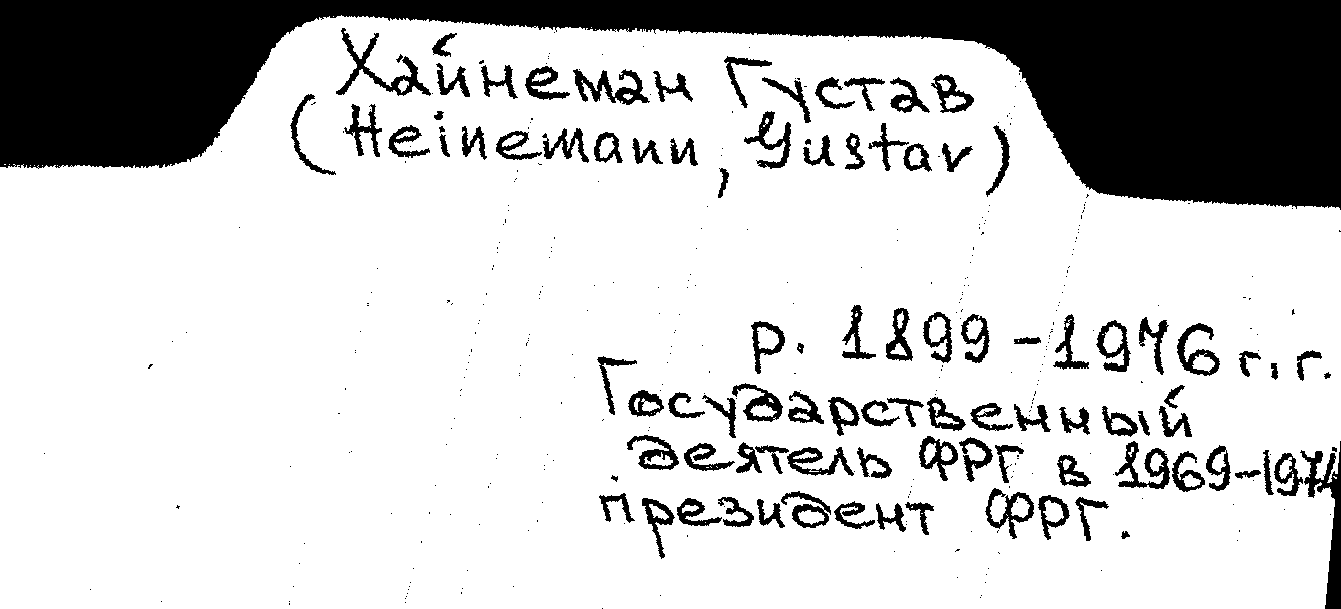 Хайнеман Густав
(Heinemann, Gustav)
р. 1899-1976 г.г.
Государственный
деятель ФРГ в 1969-1974
президент ФРГ.